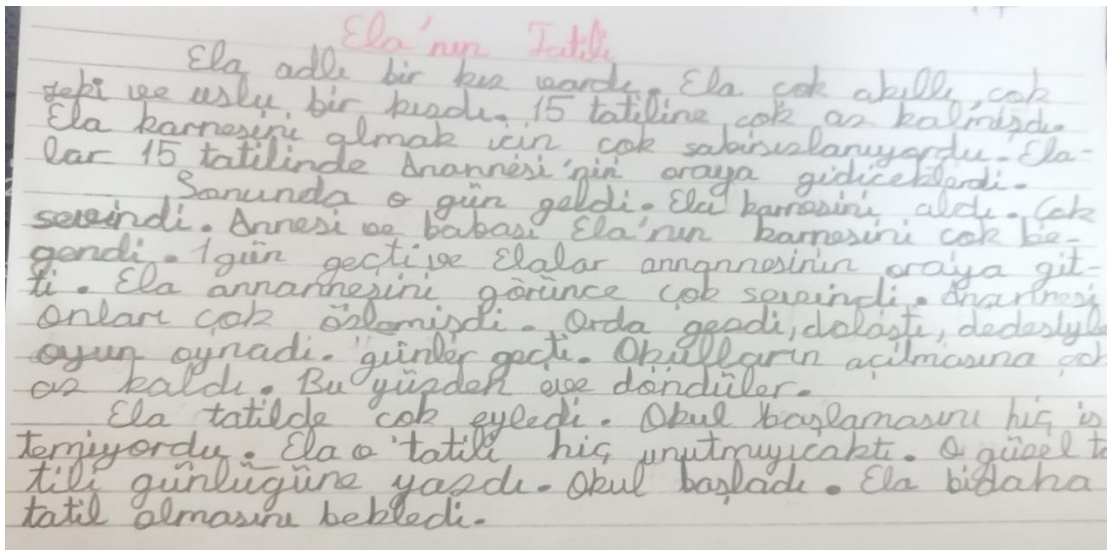 Ela'nın Tatili
Ela adlı bir kız vardı. Ela çok akıllı, çok
zeki ve uslu bir kızdı. 15 tatiline çok az kalmışdı.
Ela karnesini almak için çok sabırsızlanıyordu. Ela-
lar 15 tatilinde Anannesi'nin oraya gidiceklerdi.
Sonunda o gün geldi. Ela karnesini aldı. Çok
sevindi. Annesi ve babası Ela'nın karnesini çok be-
ğendi. 1 gün geçti ve Elalar annannesinin oraya git-
ti. Ela annannesini görünce çok sevindi. Anannesi
onları çok özlemişdi. Orda gezdi, dolaştı, dedesiyle
oyun oynadı. günler geçti. Okulların açılmasına çok
az kaldı. Bu yüzden eve döndüler.
Ela tatilde çok eyledi. Okul başlamasını hiç is
temiyordu. Ela o tatili hiç unutmuyıcaktı. O güzel ta
tili günlüğüne yazdı. Okul başladı. Ela bidaha
tatil olmasını bekledi.